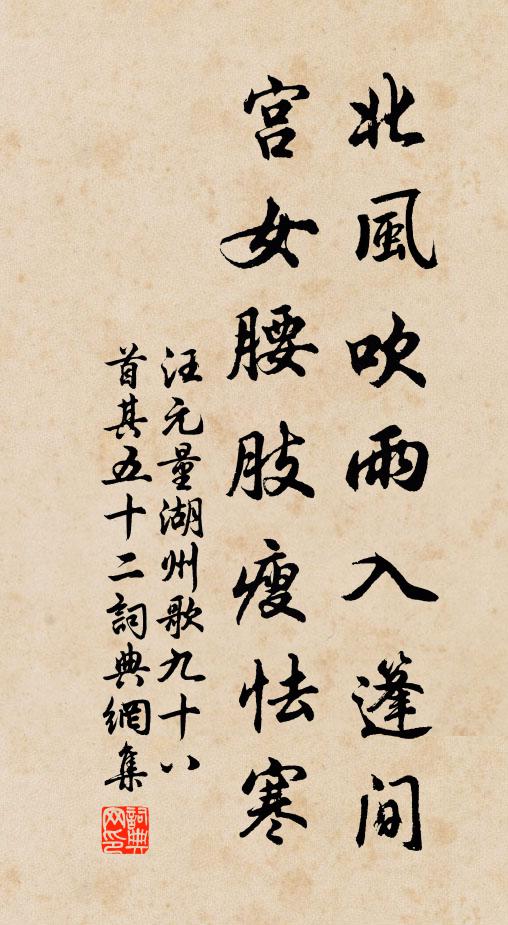 北風吹雨入篷間
宮女腰肢瘦怯寒
汪元量湖州歌九十八
首其五十二詞典網集
詞典网印